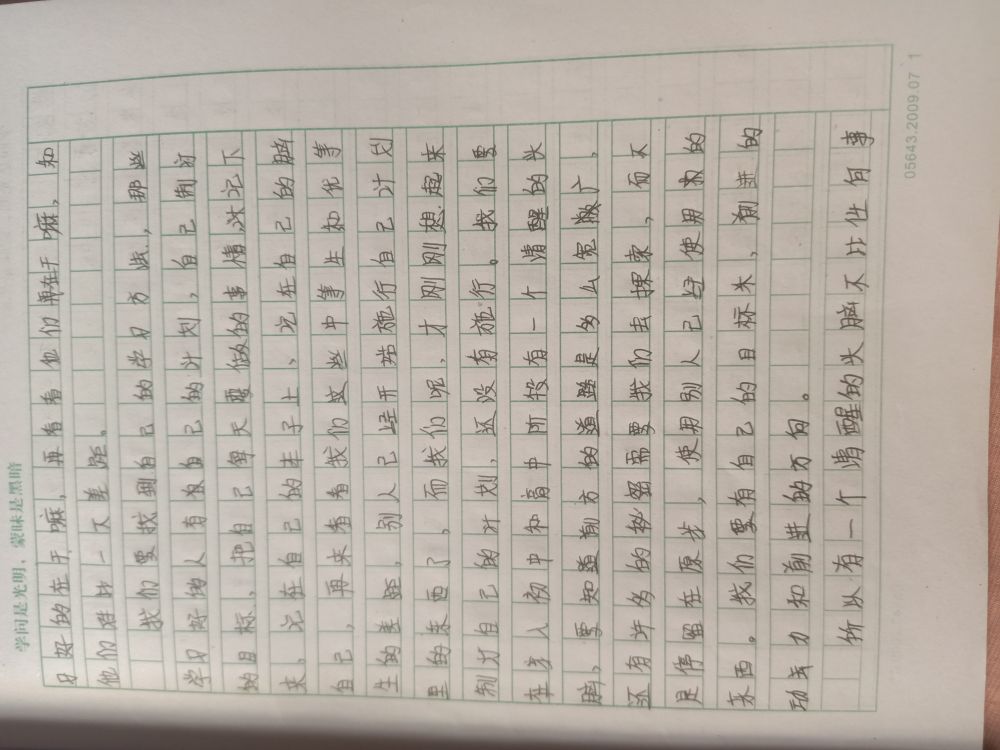 学问是光明，蒙昧是黑暗
习好的在干嘛，再看看他们再在干嘛，和
他们对比一下差距。
我们要找到自己的学习方法，那些
学习好的人有自己的计划，自己制订
的目标，把自己每天要做的事情次记下
来，记在自己的本子上，记在自己的脑
自己，再来看看我们这些中等生和优等
生的差距，别人已经开始施行自己计划
里的东西了，而我们呢，才刚刚想起来
制订自己的计划，还没有施行。我们要
在步入初中和高中阶段有一个清醒的头
脑，要知道前方的道路是多么宽敞广，
还有许多的秘密需要我们去探索，而不
是停留在原步，使用别人已经使用来的
东西。我们要有自己的目标来，前进的
动力和前进的方向。
所以有一个清醒的头脑不比任何事
05643.2009.07 1